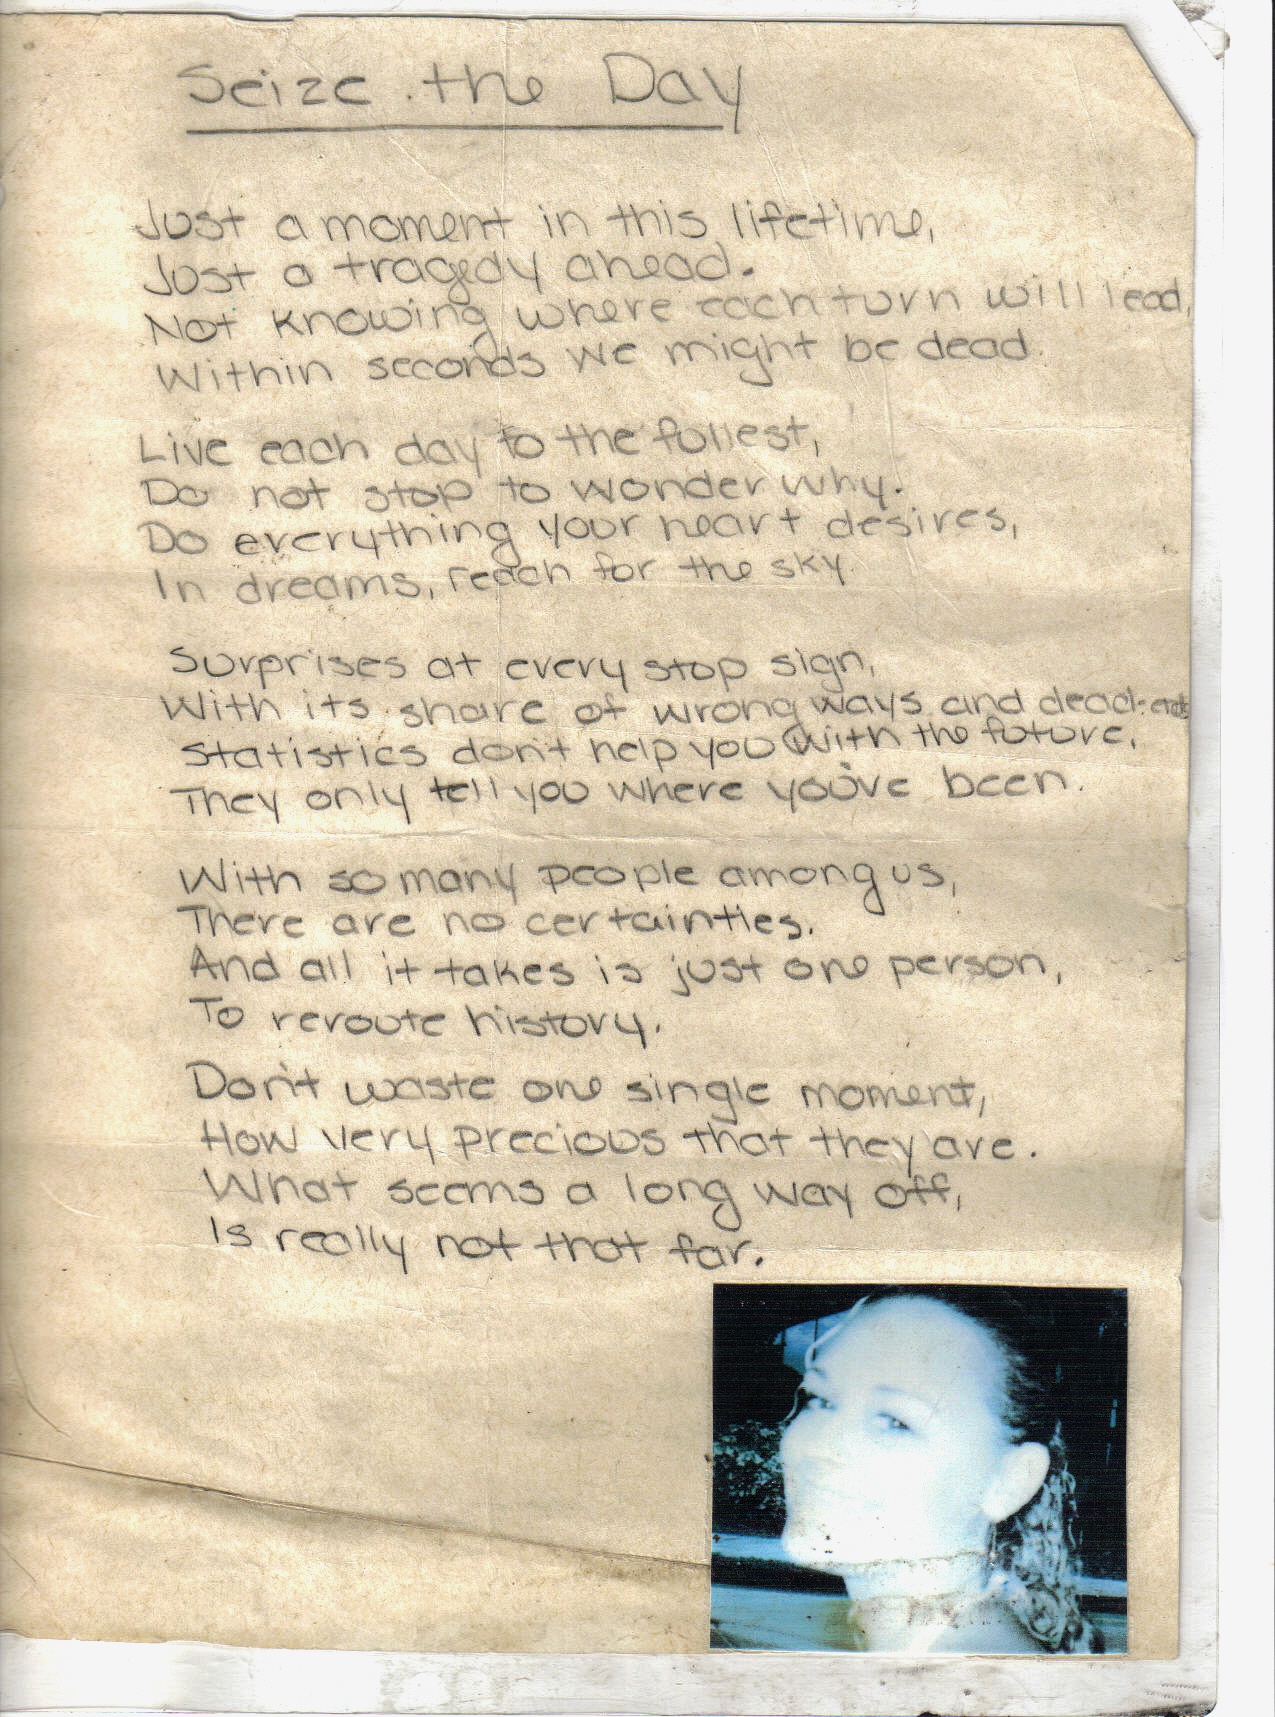 Seize the Day
Just a moment in this lifetime,
Just a tragedy ahead.
Not knowing where each turn will lead,
Within seconds we might be dead.
Live each day to the fullest,
Do not stop to wonder why.
Do everything your heart desires,
In dreams, reach for the sky.
Surprises at every stop sign,
With its share of wrong ways and dead-ends
Statistics don't help you with the future,
They only tell you where you've been.
With so many people among us,
There are no certainties.
And all it takes is just one person,
To reroute history.
Don't waste one single moment,
How very precious that they are.
What seems a long way off,
Is really not that far.